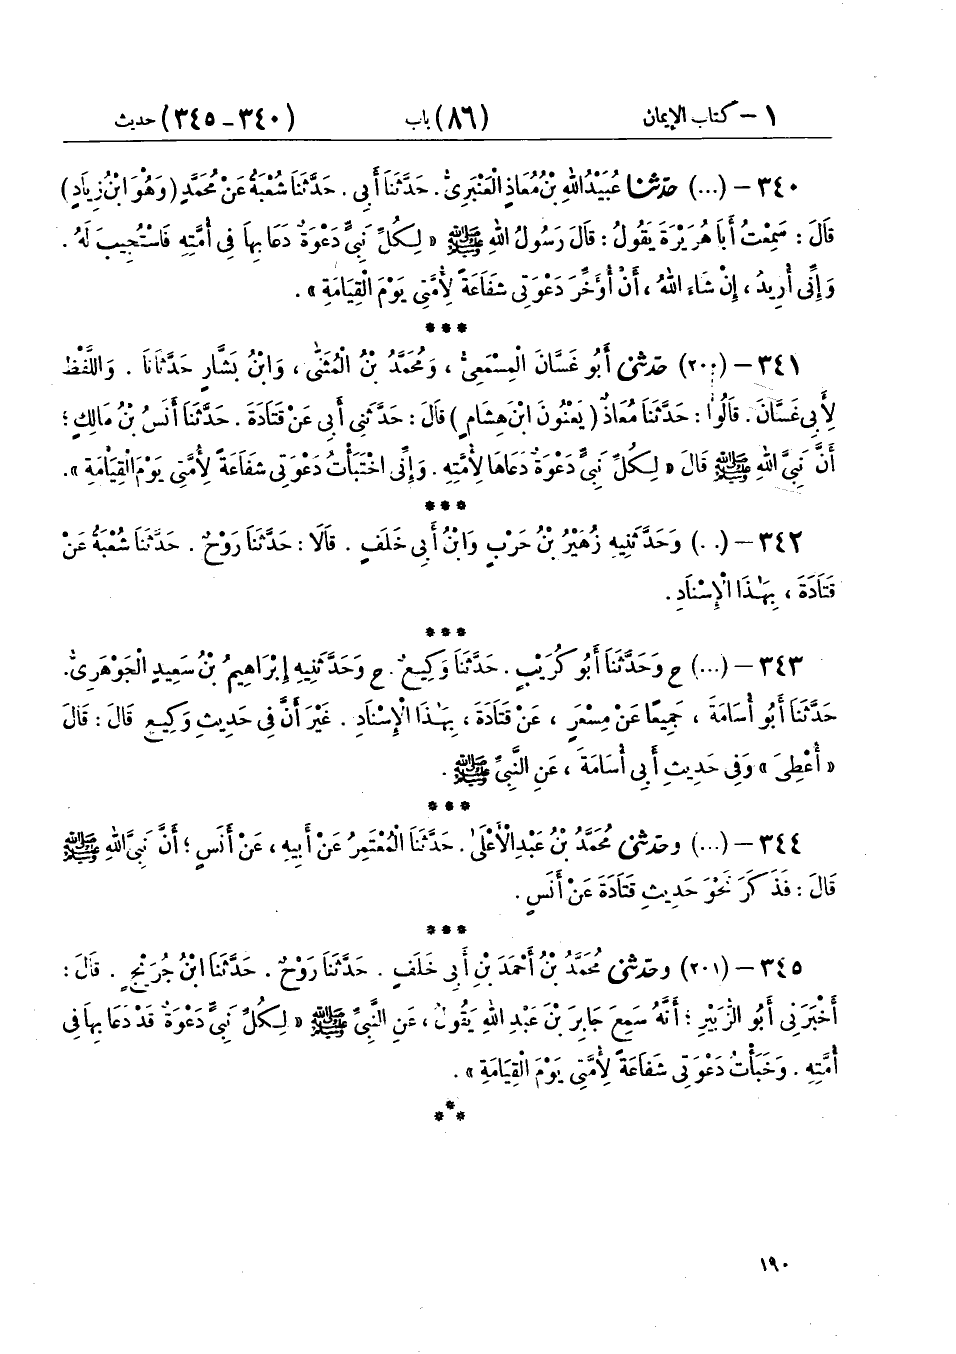 ١ – كتاب الإيمان (٨٦) باب (٣٤٠ – ٣٤٥) حديث
٣٤٠ – (...) حدّثنا عُبَيْدُ اللهِ بْنُ مُعَاذٍ الْعَنْبَرِىُّ . حَدَّثَنَا أَبِى . حَدَّثَنَا شُعْبَةُ عَنْ مُحَمَّدٍ (وَهُوَ ابْنُ زِيَادٍ)
قَالَ : سَمِعْتُ أَبَا هُرَيْرَةَ يَقُولُ : قَالَ رَسُولُ اللهِ ﷺ « لِكُلِّ نَبِىٍّ دَعْوَةٌ دَعَا بِهَا فِى أُمَّتِهِ فَاسْتُجِيبَ لَهُ .
وَإِنِّى أُرِيدُ ، إِنْ شَاءَ اللهُ ، أَنْ أُؤَخِّرَ دَعْوَتِى شَفَاعَةً لِأُمَّتِى يَوْمَ الْقِيَامَةِ » .
***
٣٤١ – (٢٠٠) حدّثنى أَبُو غَسَّانَ الْمِسْمَعِىُّ ، وَمُحَمَّدُ بْنُ الْمُثَنَّى ، وَابْنُ بَشَّارٍ حَدَّثَانَا . وَاللَّفْظُ
لِأَبِى غَسَّانَ . قَالُوا : حَدَّثَنَا مُعَاذٌ (يَعْنُونَ ابْنَ هِشَامٍ) قَالَ : حَدَّثَنِى أَبِى عَنْ قَتَادَةَ . حَدَّثَنَا أَنَسُ بْنُ مَالِكٍ ؛
أَنَّ نَبِىَّ اللهِ ﷺ قَالَ « لِكُلِّ نَبِىٍّ دَعْوَةٌ دَعَاهَا لِأُمَّتِهِ . وَإِنِّى اخْتَبَأْتُ دَعْوَتِى شَفَاعَةً لِأُمَّتِى يَوْمَ الْقِيَامَةِ » .
***
٣٤٢ – (. .) وَحَدَّثَنِيهِ زُهَيْرُ بْنُ حَرْبٍ وَابْنُ أَبِى خَلَفٍ . قَالَا : حَدَّثَنَا رَوْحٌ . حَدَّثَنَا شُعْبَةُ عَنْ
قَتَادَةَ ، بِهَٰذَا الْإِسْنَادِ .
***
٣٤٣ – (...) ح وَحَدَّثَنَا أَبُو كُرَيْبٍ . حَدَّثَنَا وَكِيعٌ . ح وَحَدَّثَنِيهِ إِبْرَاهِيمُ بْنُ سَعِيدٍ الْجَوْهَرِىُّ .
حَدَّثَنَا أَبُو أُسَامَةَ ، جَمِيعًا عَنْ مِسْعَرٍ ، عَنْ قَتَادَةَ ، بِهَٰذَا الْإِسْنَادِ . غَيْرَ أَنَّ فِى حَدِيثِ وَكِيعٍ قَالَ : قَالَ
« أُعْطِىَ » وَفِى حَدِيثِ أَبِى أُسَامَةَ ، عَنِ النَّبِىِّ ﷺ .
***
٣٤٤ – (...) وحدّثنى مُحَمَّدُ بْنُ عَبْدِ الْأَعْلَىٰ . حَدَّثَنَا الْمُعْتَمِرُ عَنْ أَبِيهِ ، عَنْ أَنَسٍ ؛ أَنَّ نَبِىَّ اللهِ ﷺ
قَالَ : فَذَكَرَ نَحْوَ حَدِيثِ قَتَادَةَ عَنْ أَنَسٍ .
***
٣٤٥ – (٢٠١) وحدّثنى مُحَمَّدُ بْنُ أَحْمَدَ بْنِ أَبِى خَلَفٍ . حَدَّثَنَا رَوْحٌ . حَدَّثَنَا ابْنُ جُرَيْجٍ . قَالَ :
أَخْبَرَنِى أَبُو الزُّبَيْرِ ؛ أَنَّهُ سَمِعَ جَابِرَ بْنَ عَبْدِ اللهِ يَقُولُ ، عَنِ النَّبِىِّ ﷺ « لِكُلِّ نَبِىٍّ دَعْوَةٌ قَدْ دَعَا بِهَا فِى
أُمَّتِهِ . وَخَبَأْتُ دَعْوَتِى شَفَاعَةً لِأُمَّتِى يَوْمَ الْقِيَامَةِ » .
***
١٩٠